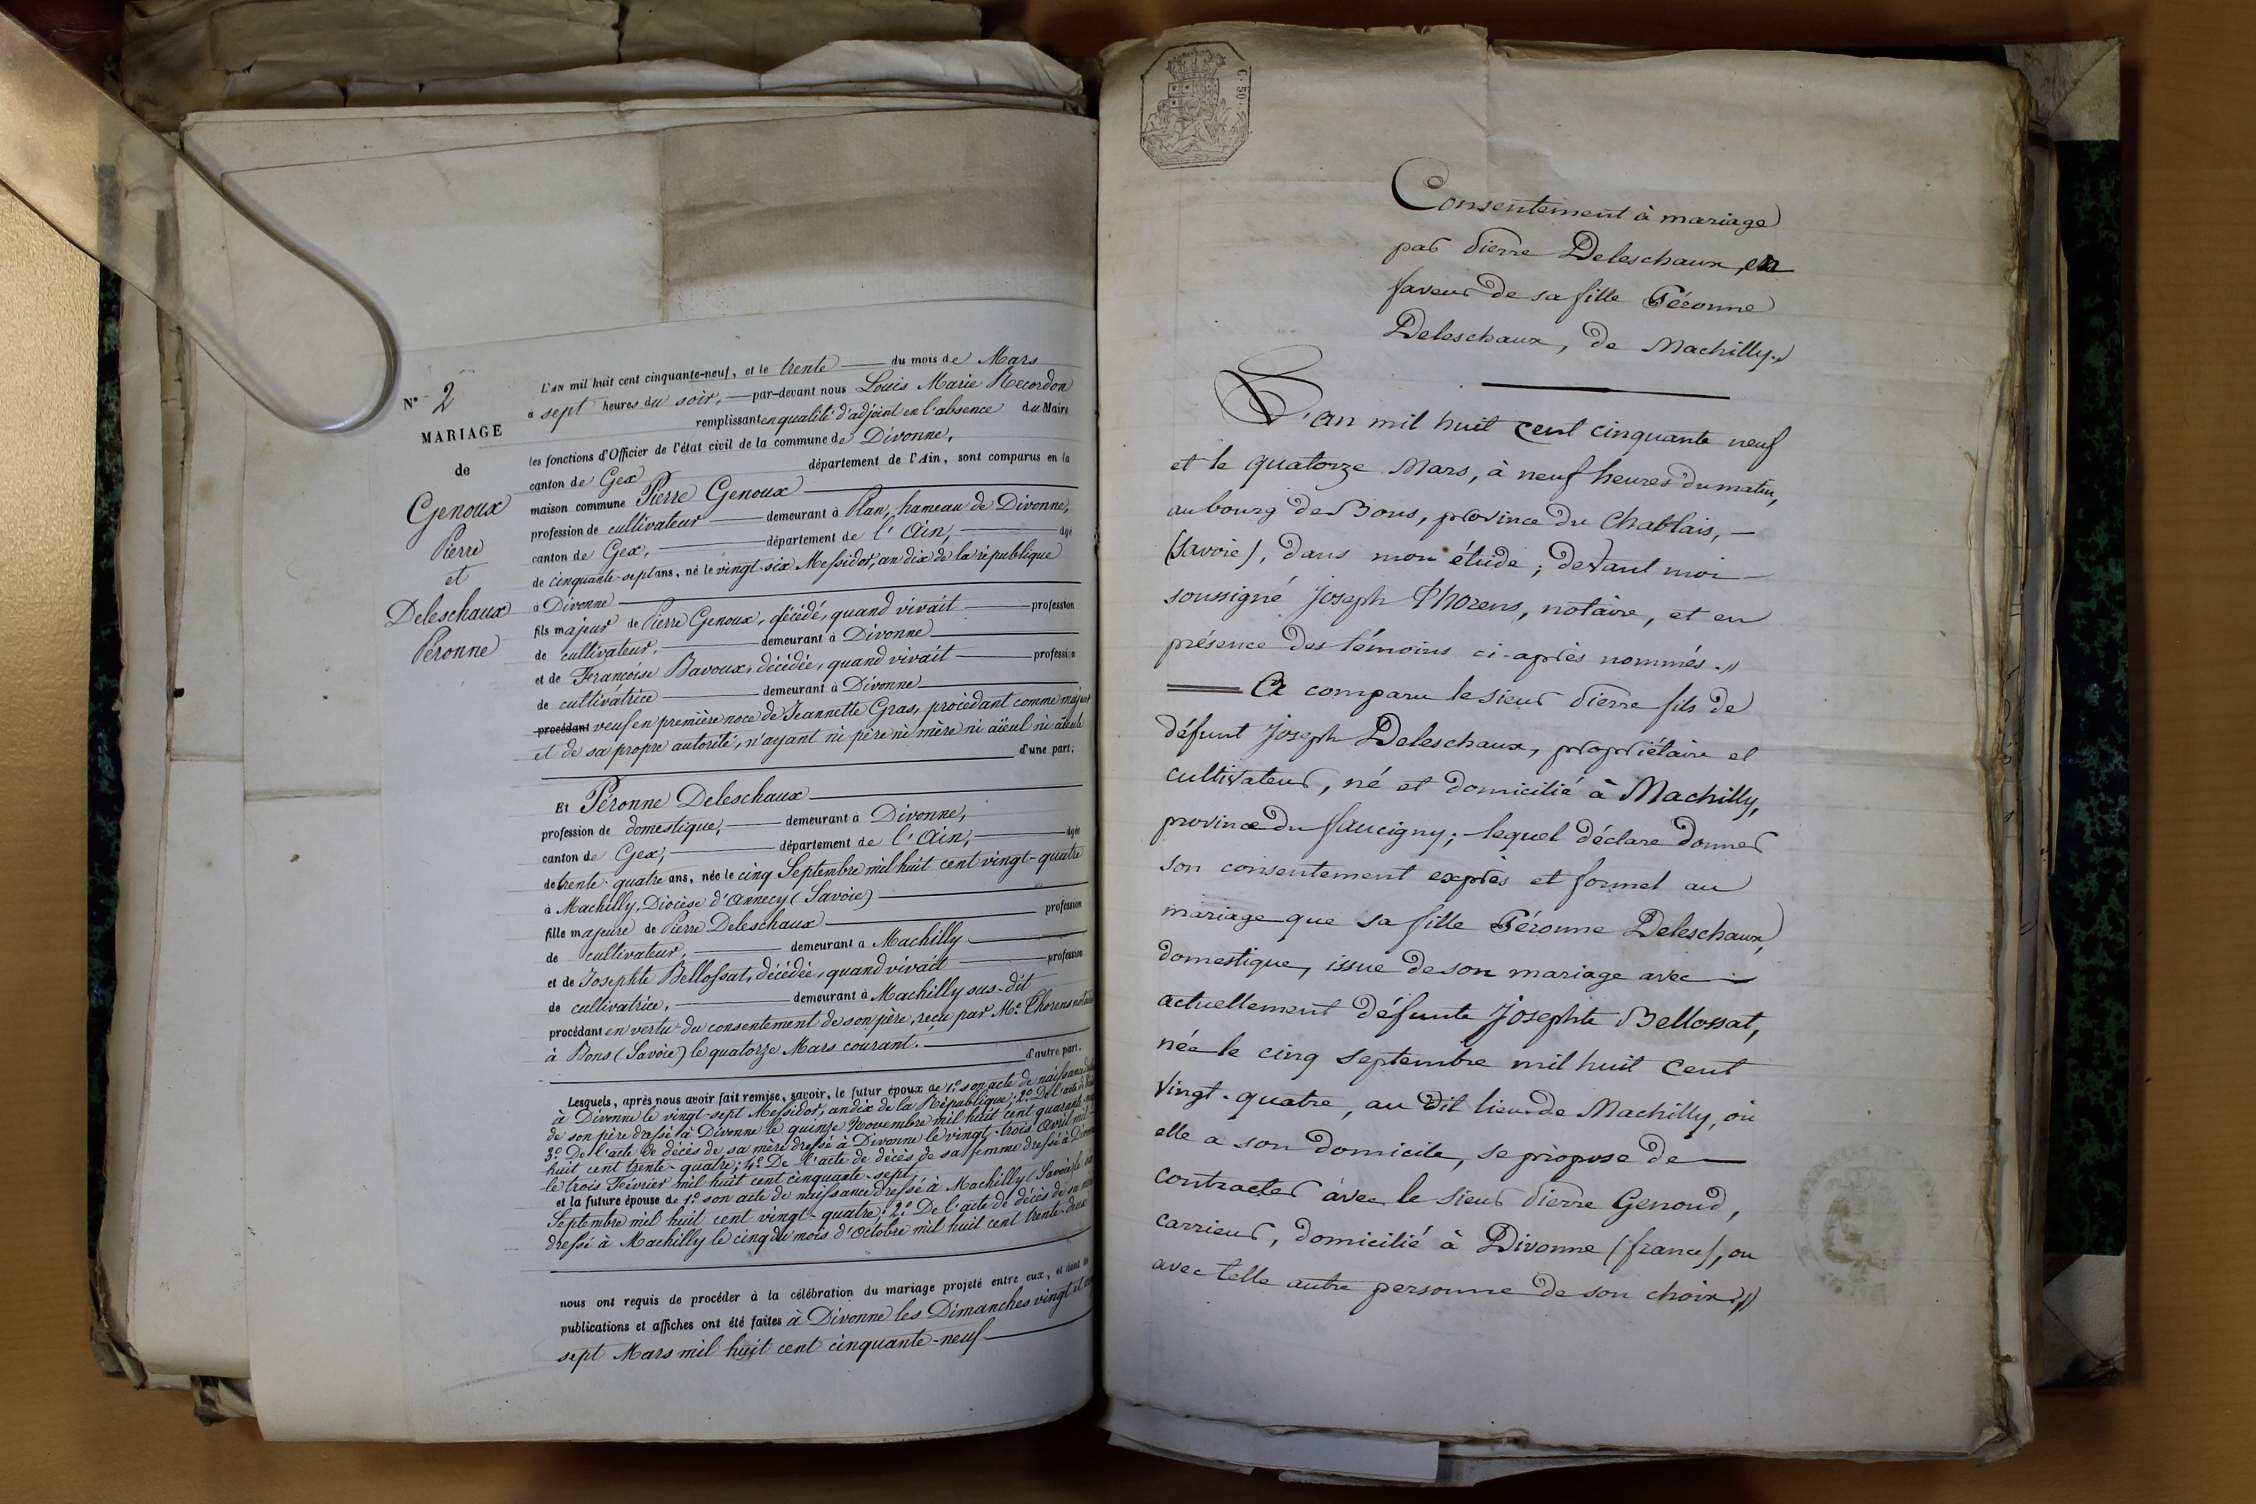 N° 2
MARIAGE
de
Genoux
Pierre
et
Deleschaux
Péronne
L'AN mil huit cent cinquante-neuf, et le trente du mois de Mars
à sept heures du soir, par-devant nous Louis Marie Recordon
remplissant en qualité d'adjoint en l'absence du Maire
les fonctions d'Officier de l'état civil de la commune de Divonne,
canton de Gex département de l'Ain, sont comparus en la
maison commune Pierre Genoux
profession de cultivateur demeurant à Plan, hameau de Divonne,
canton de Gex, département de l'Ain, âgé
de cinquante-sept ans, né le vingt-six Messidor, an dix de la république
à Divonne
fils majeur de Pierre Genoux, décédé, quand vivait profession
de cultivateur, demeurant à Divonne
et de Françoise Bavoux, décédée, quand vivait profession
de cultivatrice demeurant à Divonne
procédant veuf en première noce de Jeannette Gras, procédant comme majeur
et de sa propre autorité, n'ayant ni père ni mère ni aïeul ni aïeule
d'une part;
Et Péronne Deleschaux
profession de domestique, demeurant à Divonne,
canton de Gex, département de l'Ain, âgée
de trente-quatre ans, née le cinq Septembre mil huit cent vingt-quatre
à Machilly, Diocèse d'Annecy (Savoie)
fille majeure de Pierre Deleschaux profession
de cultivateur, demeurant à Machilly
et de Josephte Bellossat, décédée, quand vivait profession
de cultivatrice, demeurant à Machilly sus-dit
procédant en vertu du consentement de son père, reçu par Me Thorens notaire
à Bons (Savoie) le quatorze Mars courant.
d'autre part.
Lesquels, après nous avoir fait remise, savoir, le futur époux de 1° son acte de naissance
à Divonne le vingt-sept Messidor, an dix de la République; 2° De l'acte de
de son père dressé à Divonne le quinze Novembre mil huit cent quarante
3° De l'acte de décès de sa mère dressé à Divonne le vingt-trois Avril mil
huit cent trente-quatre; 4° De l'acte de décès de sa femme dressé à Divonne
le trois Février mil huit cent cinquante-sept
et la future épouse de 1° son acte de naissance dressé à Machilly (Savoie) le
Septembre mil huit cent vingt-quatre; 2° De l'acte de décès de sa
dressé à Machilly le cinq du mois d'Octobre mil huit cent trente-deux
nous ont requis de procéder à la célébration du mariage projeté entre eux, et dont les
publications et affiches ont été faites à Divonne les Dimanches vingt et
sept Mars mil huit cent cinquante-neuf
C. 50.
Consentement à mariage
par Pierre Deleschaux, en
faveur de sa fille Péronne
Deleschaux, de Machilly.
L'an mil huit cent cinquante neuf
et le quatorze Mars, à neuf heures du matin,
au bourg de Bons, province du Chablais,
(Savoie), dans mon étude; devant moi
soussigné Joseph Thorens, notaire, et en
présence des témoins ci-après nommés.
A comparu le sieur Pierre fils de
défunt Joseph Deleschaux, propriétaire et
cultivateur, né et domicilié à Machilly,
province du faucigny; lequel déclare donner
son consentement exprès et formel au
mariage que sa fille Péronne Deleschaux,
domestique, issue de son mariage avec
actuellement défunte Josephte Bellossat,
née le cinq Septembre mil huit cent
vingt-quatre, au dit lieu de Machilly, où
elle a son domicile, se propose de
contracter avec le sieur Pierre Genoud,
carrieur, domicilié à Divonne (france), ou
avec telle autre personne de son choix.